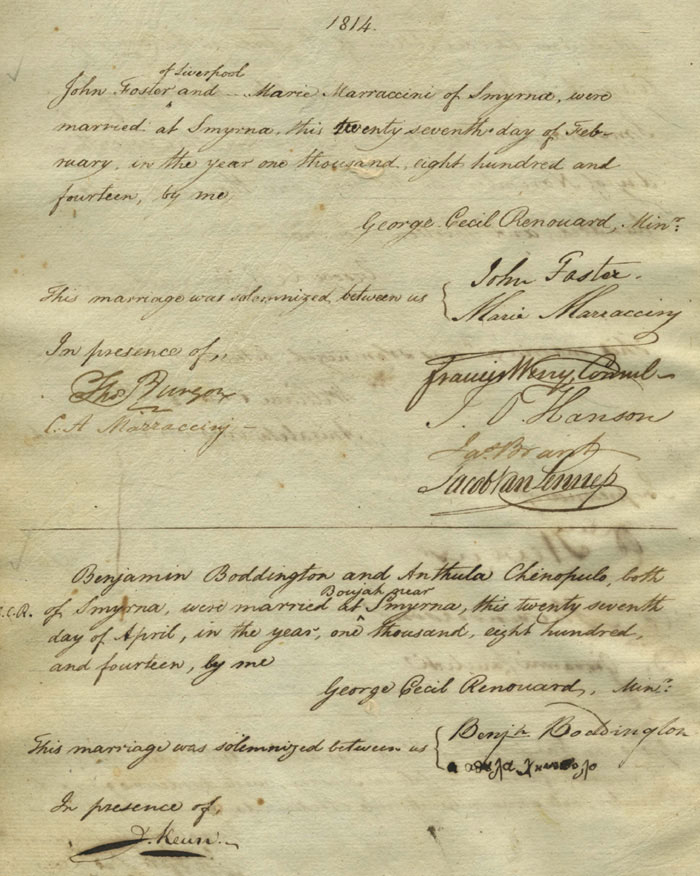 1814.
of Liverpool
John Foster and Marie Marraccini of Smyrna, were
married at Smyrna, this twenty seventh day of Feb-
ruary, in the year one thousand, eight hundred and
fourteen, by me,
George Cecil Renouard, Minr:
This marriage was solemnized between us { John Foster.
Marie Marraccinj
In presence of,
Francis Werry Consul
Thos Burgon
J. O Hanson
C. A Marraccinj
Jas Brant
Jacob Van Lennep
Benjamin Boddington and Anthula Chinopulo, both
Boujah near
G.C.R. of Smyrna, were married at Smyrna, this twenty seventh
day of April, in the year, one thousand, eight hundred,
and fourteen, by me
George Cecil Renouard, Minr:
This marriage was solemnized between us { Benjn Boddington
In presence of
J. Keun